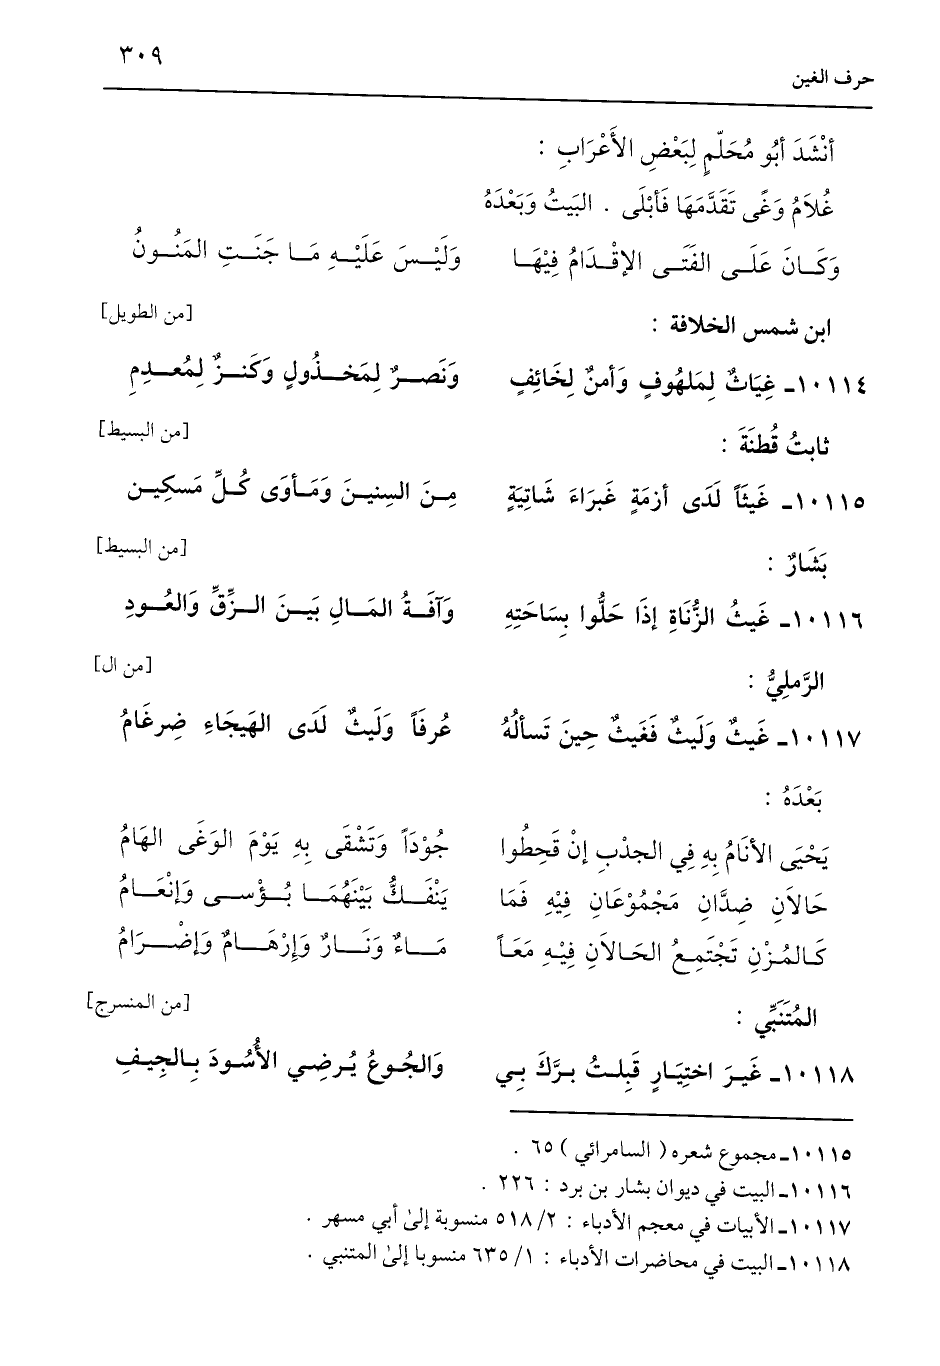 ٣٠٩
حرف الغين
أنْشَدَ أبُو مُحَلّمٍ لِبَعْضِ الأَعْرَابِ :
غُلاَمُ وَغًى تَقَدَّمَهَا فَأبْلَى . البَيتُ وَبَعْدَهُ
وَكَـانَ عَلَـى الفَتَـى الإقْـدَامُ فِيْهَـا وَلَيْـسَ عَلَيْـهِ مَـا جَنَـتِ المَنُـونُ
[من الطويل]
ابن شمس الخلافة :
١٠١١٤ـ غِيَاثٌ لِمَلهُوفٍ وَأمنٌ لِخَائِفٍ وَنَصـرٌ لِمَخـذُولٍ وَكَنـزٌ لِمُعـدِمِ
[من البسيط]
ثابتُ قُطنَةَ :
١٠١١٥ـ غَيثَاً لَدَى أزمَةٍ غَبرَاءَ شَاتِيَةٍ مِـنَ السِنيـنَ وَمَـأوَى كُـلِّ مَسكِيـن
[من البسيط]
بَشَارٌ :
١٠١١٦ـ غَيثُ الزُّنَاةِ إذَا حَلُّوا بِسَاحَتِهِ وَآفَـةُ المَـالِ بَيـنَ الـزِّقِّ وَالعُـودِ
[من ال]
الرَّملِيُّ :
١٠١١٧ـ غَيثٌ وَلَيثٌ فَغَيثٌ حِينَ تَسألُهُ عُرفَاً وَلَيثٌ لَدَى الهَيجَاءِ ضِرغَامُ
بَعْدَهُ :
يَحْيَى الأنَامُ بِهِ فِي الجذبِ إنْ قَحِطُوا جُوْدَاً وَتَشْقَى بِهِ يَوْمَ الوَغَى الهَامُ
حَالاَنِ ضِدَّانِ مَجْمُوْعَانِ فِيْهِ فَمَا يَنْفَـكُّ بَيْنَهُمَـا بُـؤْسـى وَإنْعَـامُ
كَالمُـزْنِ تَجْتَمِـعُ الحَـالاَنِ فِيْـهِ مَعَـاً مَـاءٌ وَنَـارٌ وَإرْهَـامٌ وَإضْـرَامُ
[من المنسرج]
المُتَنَبِّي :
١٠١١٨ـ غَيـرَ اختِيَـارٍ قَبِلـتُ بـرَّكَ بِـي وَالجُـوعُ يُـرضِـي الأُسُـودَ بِـالجِيـفِ
١٠١١٥ـ مجموع شعره ( السامرائي ) ٦٥ .
١٠١١٦ـ البيت في ديوان بشار بن برد : ٢٢٦ .
١٠١١٧ـ الأبيات في معجم الأدباء : ٢/ ٥١٨ منسوبة إلىٰ أبي مسهر .
١٠١١٨ـ البيت في محاضرات الأدباء : ١/ ٦٣٥ منسوبا إلىٰ المتنبي .